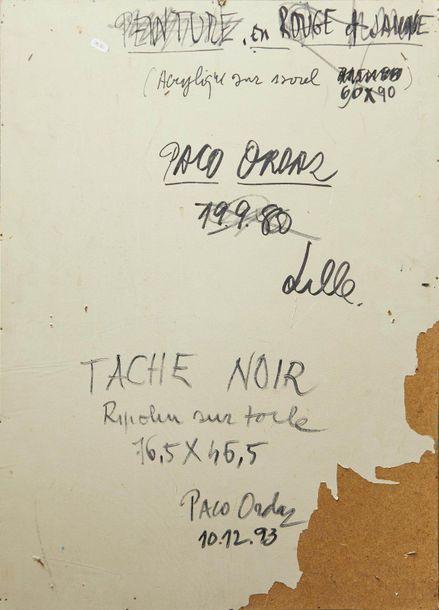 PEINTURE, en ROUGE et JAUNE
(Acrylique sur isorel
60x90)
PACO ORDAZ
19.9.80
Lille.
TACHE NOIR
Ripolin sur toile
76,5 X 45,5
PACO Ordaz
10.12.93